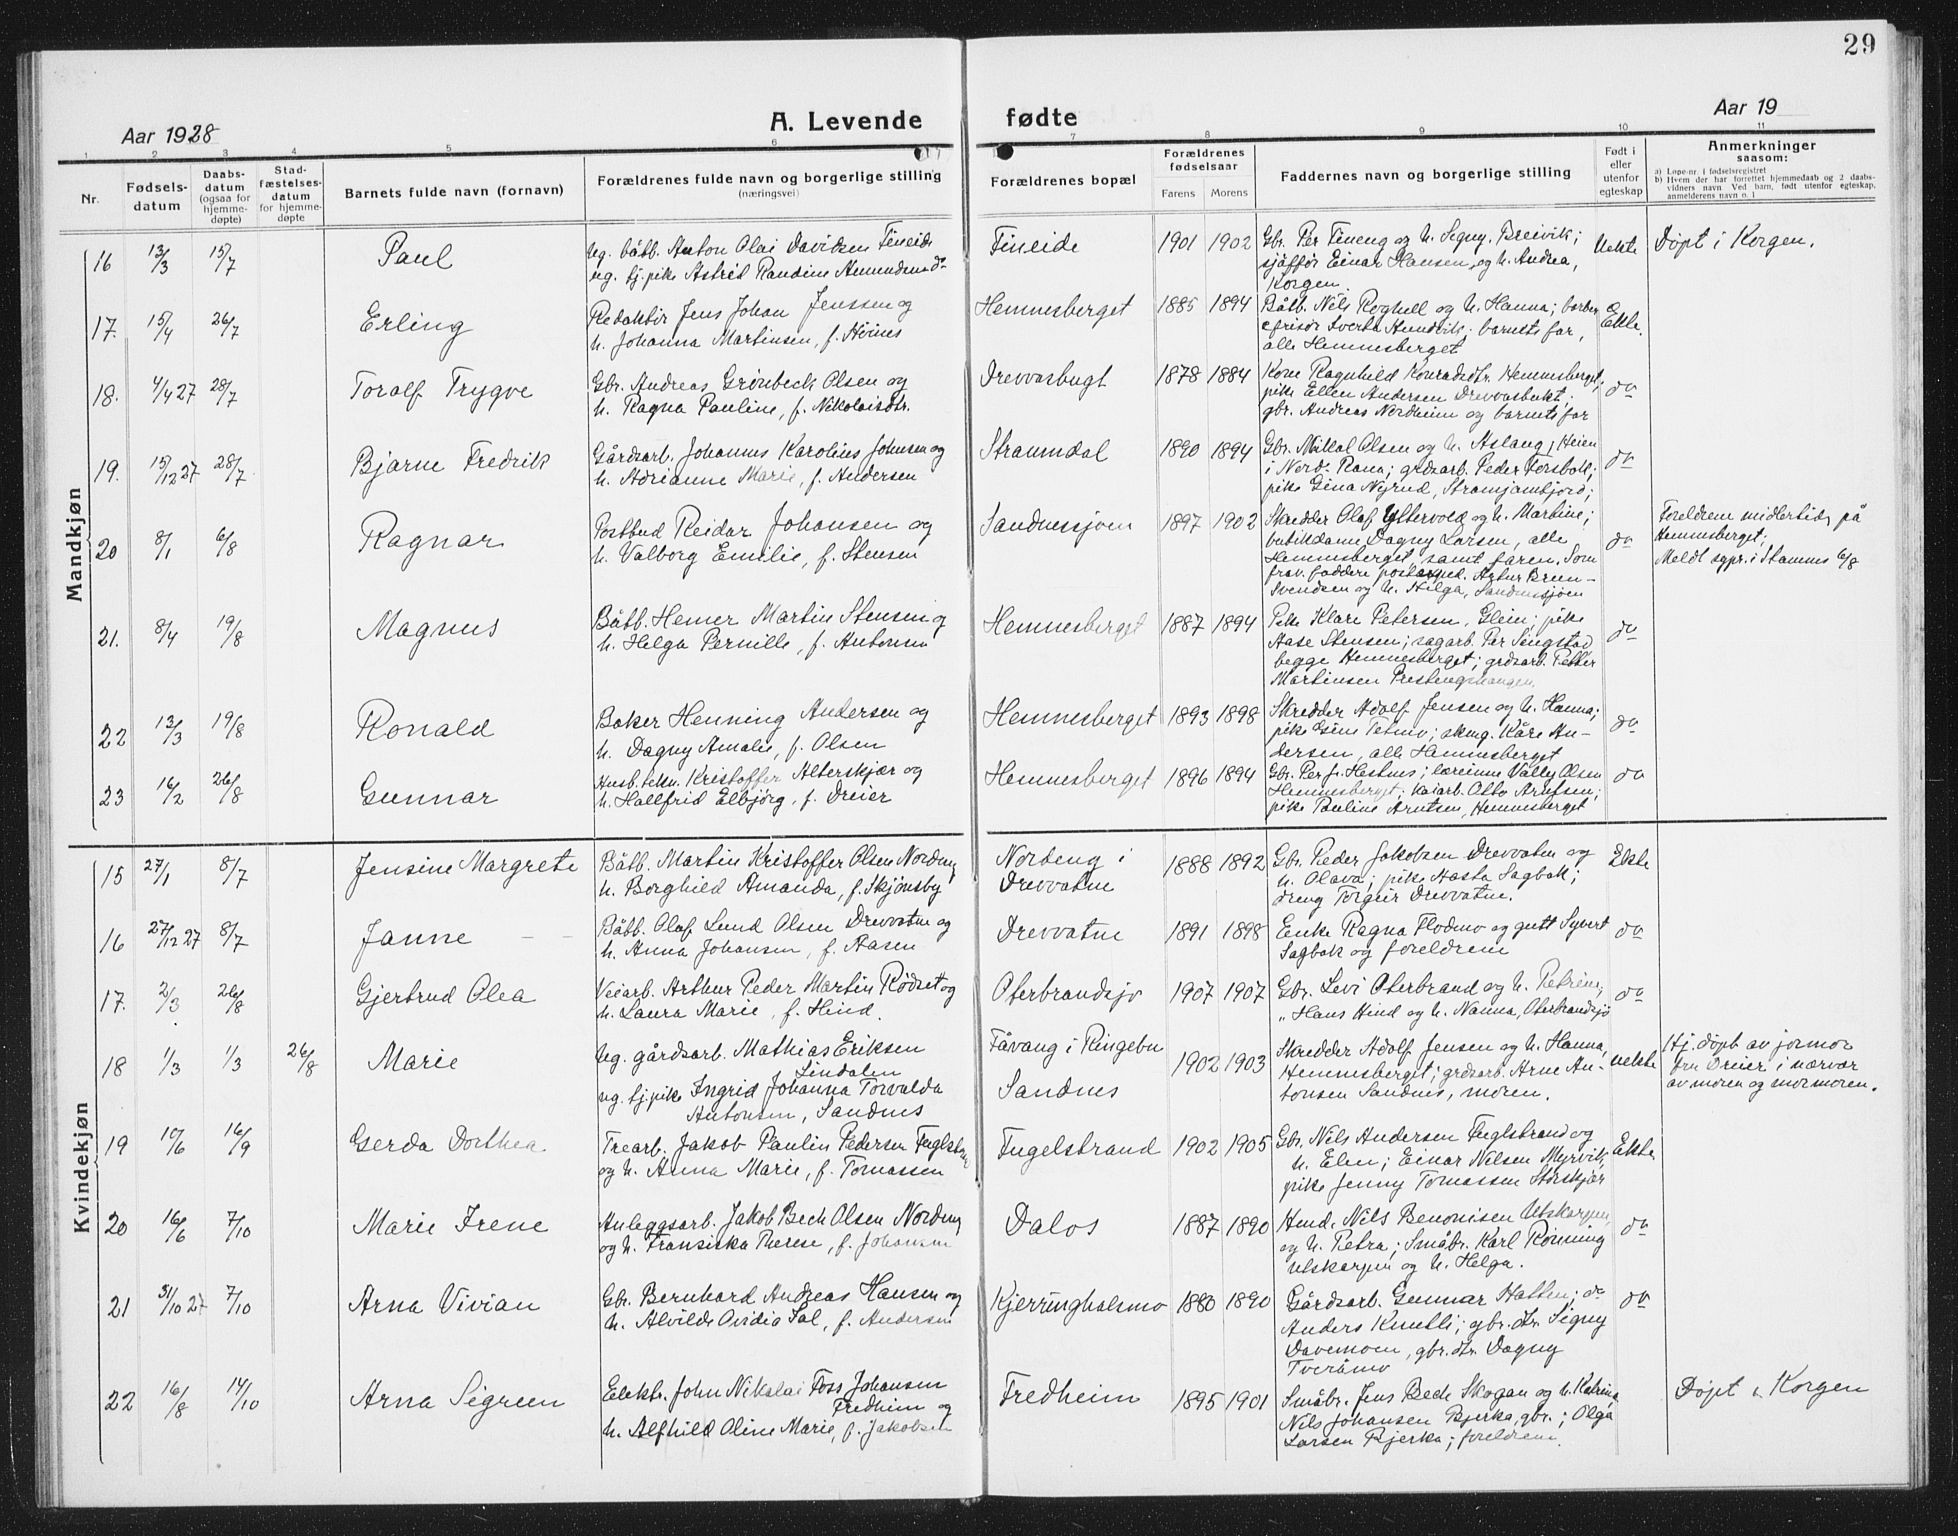 29
Aar 1928
A. Levende
fødte
Aar 19
1 2 3 4 5 6 7 8 9 10 11
Nr.
Fødsels-
datum
Daabs-
datum
(ogsaa for
hjemme-
døpte)
Stad-
fæstelses-
datum
for hjemme-
døpte
Barnets fulde navn (fornavn)
Forældrenes fulde navn og borgerlige stilling
(næringsvei)
Forældrenes bopæl
Forældrenes
fødselsaar
Farens Morens
Faddernes navn og borgerlige stilling
Født i
eller
utenfor
egteskap
Anmerkninger
saasom:
a) Løpe-nr. i fødselsregistret
b) Hvem der har forrettet hjemmedaab og 2 daabs-
vidners navn. Ved barn, født utenfor egteskap,
anmelderens navn o. l
Mandkjøn
16 13/3 15/7 Paul
Ug. båtb. Anton Olai Davidsen Fineide
ug. tj.pike Astrid Randine Amundsen do
Fineide 1901 1902
Gbr. Per Fineng og h. Segny, Breivik;
sjåffør Einar Hansen, og h. Andrea,
Korgen.
Uekte
Døpt i Korgen.
17. 15/4 26/7 Erling
Redaktør Jens Johan Jenssen og
h. Johanna Martinsen, f. Høines
Hemnesberget 1885 1894
Båtb. Nils Roghell og h. Hanna; barber
& frisør Sverta Hundvik; barnets far,
alle Hemnesberget
Ekte.
18. 4/4 27 28/7 Toralf Trygve
Gbr. Andreas Grønbeck Olsen og
h. Ragna Pauline, f. Nikolaisdtr.
Drevvasbugt 1878 1884
Kone Ragnhild Konradsdtr. Hemnesberget;
pike Ellen Andersen Drevvasbukt;
gbr. Andreas Nordheim og barnets far
do
19. 15/12 27 28/7 Bjarne Fredrik
Gårdsarb. Johannes Karolius Johnsen og
h. Adrianne Marie, f. Andersen
Straumdal 1890 1894
Gbr. Mikal Olsen og h. Aslaug, Heien
i Nord-Rana; grdsarb. Peder Forsbak;
pike Gina Nyrud, Straumfjord;
do
20 8/1 6/8 Ragnar
Postbud Reidar Johansen og
h. Valborg Emilie, f. Stensen
Sandnessjøen 1897 1902
Skredder Olaf Yttervold og h. Martine;
butikdame Dagny Larsen, alle
Hemnesberget, samt faren. Som
frav. faddere posteksped. Artur Bruun-
Svendsen og h. Helga, Sandnessjøen
do
Foreldrene midlertidig på
Hemnesberget;
Meldt sgpr. i Stamnes 6/8
21. 8/4 19/8 Magnus
Båtb. Hemer Martin Stensen og
h. Helga Pernille, f. Antonsen
Hemnesberget 1887 1894
Pike Klare Petersen, Glein; pike
Aase Stensen; sagarb. Per Singstad
begge Hemnesberget; grdsarb. Petter
Martinsen Prestenghaugen
do
22 13/3 19/8 Ronald
Baker Henning Andersen og
h. Dagny Amalie, f. Olsen
Hemnesberget 1893 1898
Skredder Adolf Jensen og h. Hanna;
pike Gine Tetmo; skmg. Kåre An-
dersen, alle Hemnesberget
do
23 16/2 26/8 Gunnar
Kristoffer Alterskjær og
h. Hallfrid Elbjørg, f. Dreier
Hemnesberget 1896 1894
Gbr. Per fr. Hestnes; lærerinne Valby Olsen
Hemnesberget; kaiarb. Otto Arntsen;
pike Pauline Arntsen, Hemnesberget
do
Kvindekjøn
15 27/1 8/7 Jensine Margrete
Båtb. Martin Kristoffer Olsen Nordeng
h. Borghild Amanda, f. Skjønsby
Nordeng i
Drevvatne 1888 1892
Gbr. Peder Jakobsen Drevvatne og
h. Olava; pike Aasta Sagbak;
dreng Torgeir Drevvatne.
Ekte
16 27/12 27 8/7 Janne
Båtb. Olaf Lund Olsen Drevvatne og
h. Anna Johansen, f. Aasen
Drevvatne 1891 1898
Enke Ragna Flodmo og gutt Syvert
Sagbak og foreldrene
do
17. 2/3 26/8 Gjertrud Olea
Veiarb. Arthur Peder Martin Rødset og
h. Laura Marie, f. Hind.
Oterbrandsjo 1907 1907
Gbr. Levi Oterbrand og h. Petrine;
" Hans Hind og h. Nanna, Oterbrandsjo
do
18 1/3 1/3 26/8 Marie
Ug. gårdsarb. Mathias Eriksen
Lindalen
ug. tj.pike Ingrid Johanna Torvalda
Antonsen, Sandnes
Fåvang i Ringebu
Sandnes 1902 1903
Skredder Adolf Jensen og h. Hanna,
Hemnesberget; grdsarb. Arne An-
tonsen Sandnes, moren.
uekte
Hj. døpt av jormor
fru Dreier i nærvær
av moren og mormoren.
19 10/6 16/9 Gerda Dorthea
Trearb. Jakob Paulin Pedersen Fuglstrand
og h. Anna Marie, f. Tomassen
Fugelstrand 1902 1905
Gbr. Nils Andersen Fuglstrand og
h. Elen; Einar Nilsen Myrvik,
pike Jenny Tomassen Storskjær
Ekte
20 16/6 7/10 Marie Irene
Anleggsarb. Jakob Bech Olsen Nordeng
og h. Fransiska Therese, f. Johansen
Dalos 1887 1890
Hand. Nils Benonisen Utskarpen,
og h. Petra; Småbr. Karl Rönning
Utskarpen og h. Helga.
do
21 31/10 27 7/10 Arna Vivian
Gbr. Bernhard Andreas Hansen og
h. Alvilde Ovidia Sal, f. Andersen
Kjerringhalsmo 1880 1890
Gårdsarb. Gunnar Hatten; do
Anders Knutli; gbr. dtr. Signy
Davemoen, gbr. dtr. Dagny
Tveråmo
do
22 16/8 14/10 Arna Sigreen
Elektr. John Nikolai Foss Johansen
Fredheim og
h. Alfhild Oline Marie, f. Jakobsen
Fredheim 1895 1901
Småbr. Jens Bech Skogan og h. Katrine
Nils Johansen Bjerka, gbr.; Olga
Larsen Bjerka; foreldrene.
Døpt i Korgen